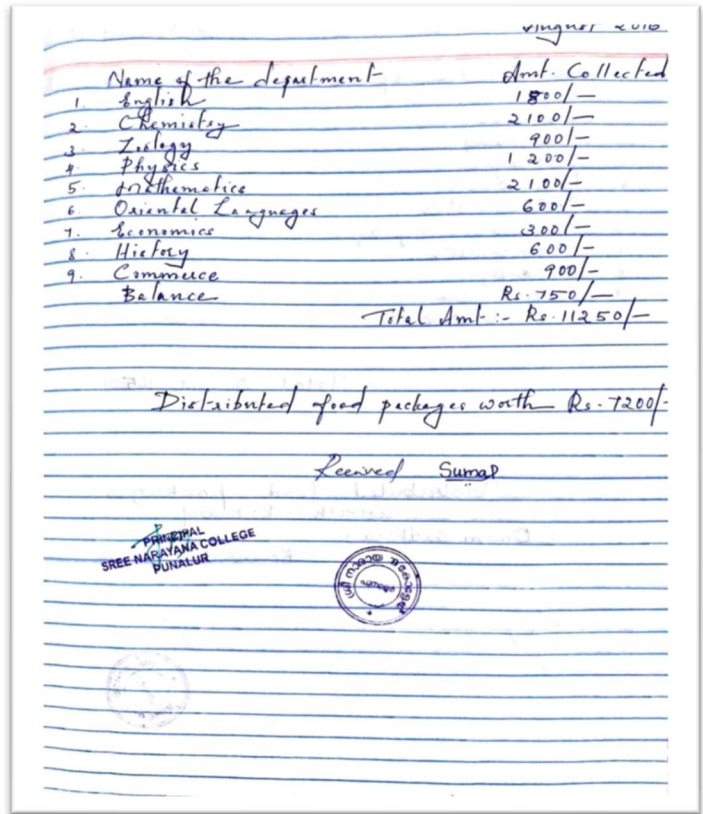 August 2016
Name of the department Amt. Collected
1. English 1800/-
2. Chemistry 2100/-
3. Zoology 900/-
4. Physics 1200/-
5. Mathematics 2100/-
6. Oriental Languages 600/-
7. Economics 300/-
8. History 600/-
9. Commerce 900/-
Balance Rs. 750/-
Total Amt :- Rs. 11250/-
Distributed food packages worth Rs. 7200/-
Received Suma P
PRINCIPAL
SREE NARAYANA COLLEGE
PUNALUR